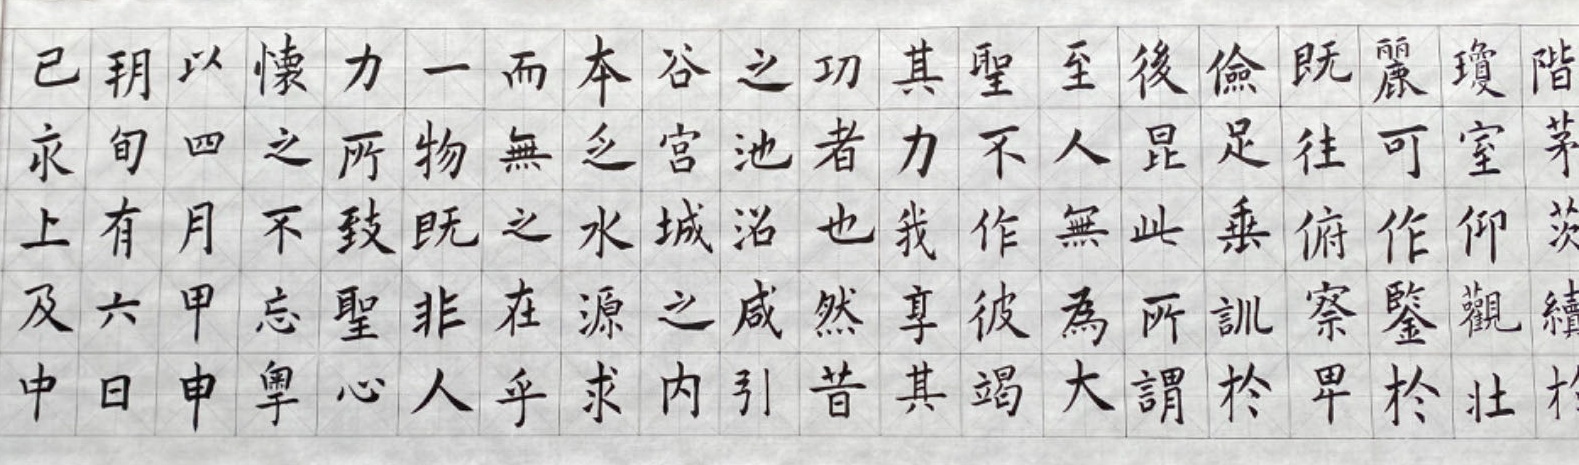 階茅茨續於
瓊室仰觀壯
麗可作鑒於
既往俯察卑
儉足垂訓於
後昆此所謂
至人無為大
聖不作彼竭
其力我享其
功者也然昔
之池沼咸引
谷宮城之内
本乏水源求
而無之在乎
一物既非人
力所致聖心
懷之不忘粵
以四月甲申
朔旬有六日
己亥上及中